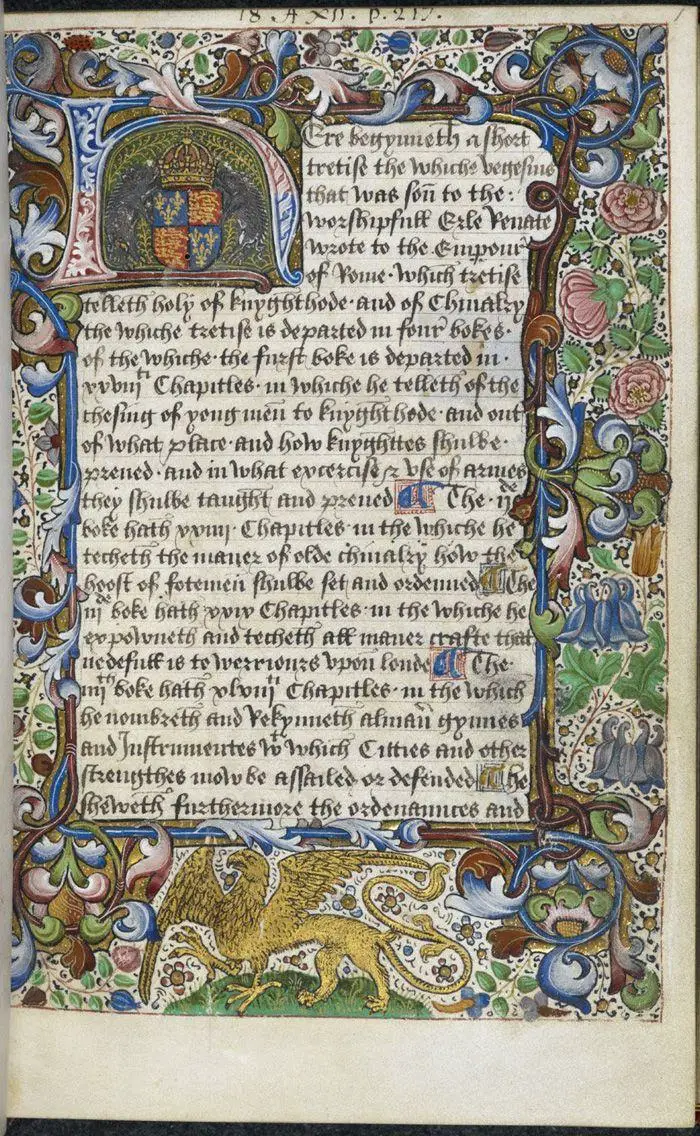 18 . A XII . p. 217.
Here begynneth a short
tretise the whiche vegesius
that was son to the:
worshipfull Erle Renate
wrote to the Emperour
of Rome · which tretise
telleth holy of knyghthode · and of Chiualry
the whiche tretise is departed in four bokes ·
of the whiche · the furst boke is departed in ·
xxviijti Chapitles · in whiche he telleth of the
chesing of yong men to knyghthode · and out
of what place · and how knyghttes shulbe ·
preued · and in what excercise & vse of armes
they shulbe taught and preued The · ijde
boke hath xxiiij · Chapitles · in the whiche he
techeth the maner of olde chiualry how the
hoost of fotemen shulbe set and ordenned The
iijde boke hath xxiiij Chapitles · in the whiche he
expowneth and techeth all maner crafte that
nedefull is to werriours vpon londe The ·
iiijth boke hath xlviijti Chapitles · in the which
he nombreth and Rekynneth alman gynnes
and Instrumentes wt which Citties and other
strengthes mow be assailed or defended The
sheweth furthermore the ordenaunces and